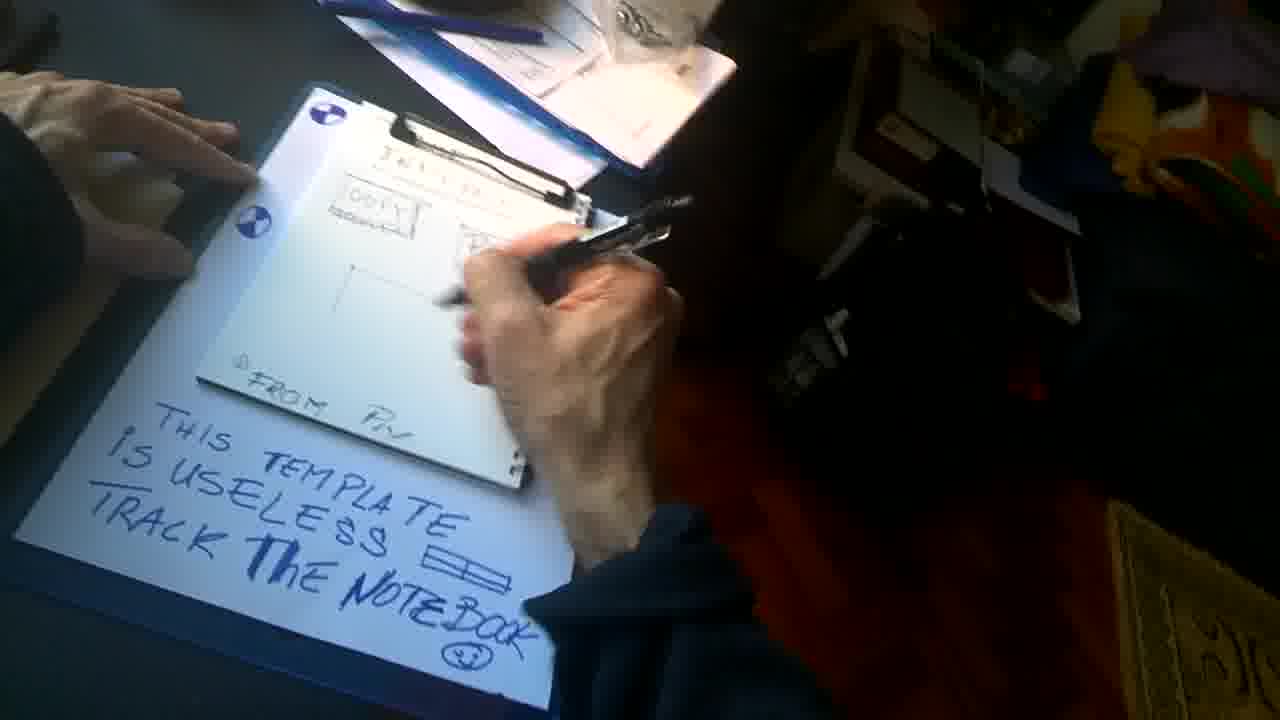 COPY
FROM PIN
THIS TEMPLATE
IS USELESS
TRACK THE NOTEBOOK